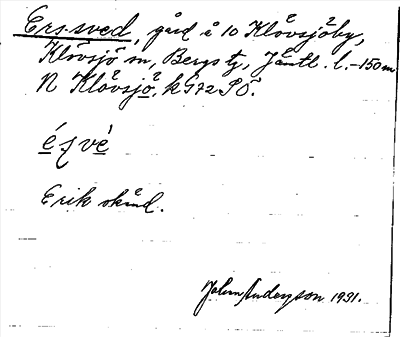 Ers-sved, gård å 10 Klövsjöby,
Klövsjö sn, Bergs tg, Jämtl. l. -150 m
N Klövsjö, k 972 PÖ.
é ʃ vè
Erik okänd.
John Anderson 1931.